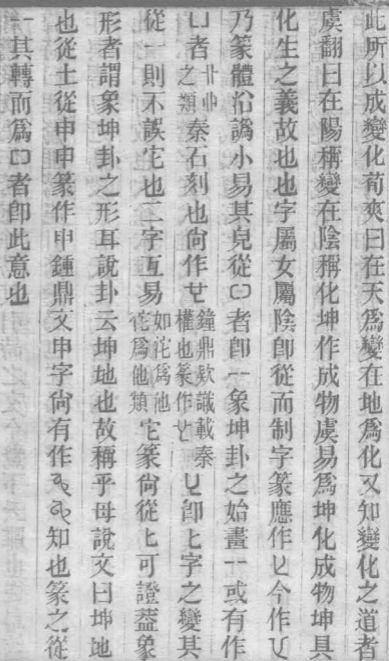 此所以成變化荀爽曰在天爲變在地爲化又知變化之道者
虞翻曰在陽稱變在陰稱化坤作成物虞易爲坤化成物坤具
化生之義故也也字屬女屬陰卽從而制字篆應作 今作
乃篆體沿譌小易其皃從 者卽一象坤卦之始畫一或有作
凵者
之類
秦石刻也尙作
鐘鼎欵識載秦
權也篆作
卽匕字之變其
從一則不誤它也二字互易
如沱爲池
佗爲他類
它篆尙從匕可證葢象
形者謂象坤卦之形耳說卦云坤地也故稱乎母說文曰坤地
也從土從申申篆作申鍾鼎文申字尙有作 知也篆之從
一其轉而爲 者卽此意也